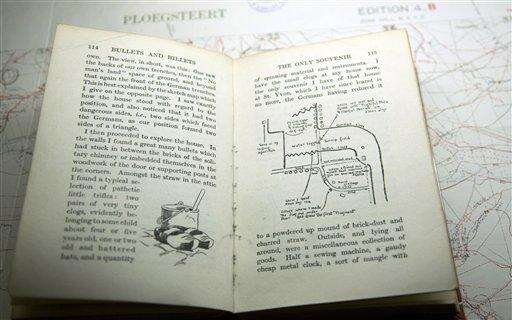 PLOEGSTEERT
EDITION 4. B
114 BULLETS AND BILLETS
own. The view, in short, was this: One saw
the backs of our own trenches, then the "No
man's land" space of ground, and beyond
that again the front of the German trenches.
This is best explained by the sketch map which
I give on the opposite page. I saw exactly
how the house stood with regard to the
position, and also noticed that it had two
dangerous sides, i.e., two sides which faced
the Germans, as our position formed two
sides of a triangle.
I then proceeded to explore the house. In
the walls I found a great many bullets which
had stuck in between the bricks of the soli-
tary chimney or imbedded themselves in the
woodwork of the door or supporting posts at
the corners. Amongst the straw in the attic
I found a typical se-
lection of pathetic
little trifles: two
pairs of very tiny
clogs, evidently be-
longing to some child
about four or five
years old, one or two
old and battered
hats, and a quantity
THE ONLY SOUVENIR 115
of spinning material and instruments. I
have the small clogs at my house now,
the only souvenir I have of that house
at St. Yvon, which I have since learnt is
no more, the Germans having reduced it
to a powdered up mound of brick-dust and
charred straw. Outside, and lying all
around, were a miscellaneous collection of
goods. Half a sewing machine, a gaudy
cheap metal clock, a sort of mangle with